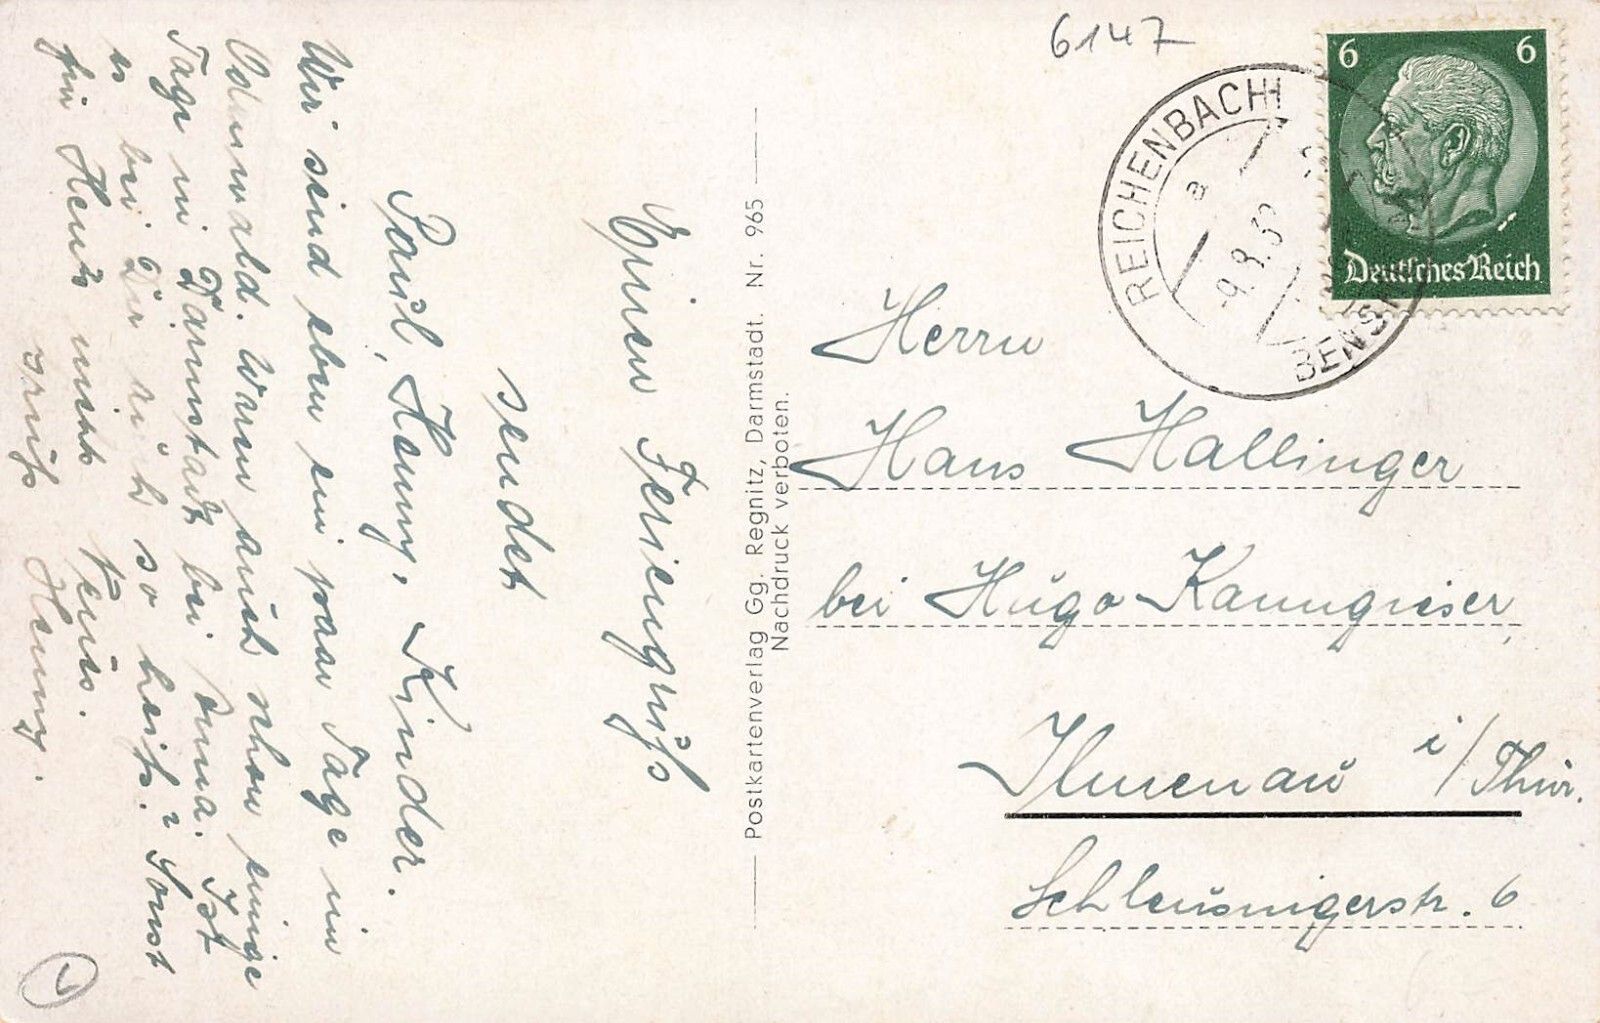 6147
6 6
Deutsches Reich
REICHENBACH
a
BENSH
Herrn
Hans Hallinger
bei Hugo Kanngieser,
Ilmenau i/Thür.
Schleusingerstr. 6
Postkartenverlag Gg. Regnitz, Darmstadt. Nr. 965
Nachdruck verboten.
Einen Feriengruß
sendet
Paul, Henny, Kinder.
Wir sind eben ein paar Tage im
Odenwald. Waren auch schon einige
Tage in Darmstadt bei Oma. Ist
es bei Dir auch so heiß? Sonst
für Heute nichts Neues.
Gruß Henny.